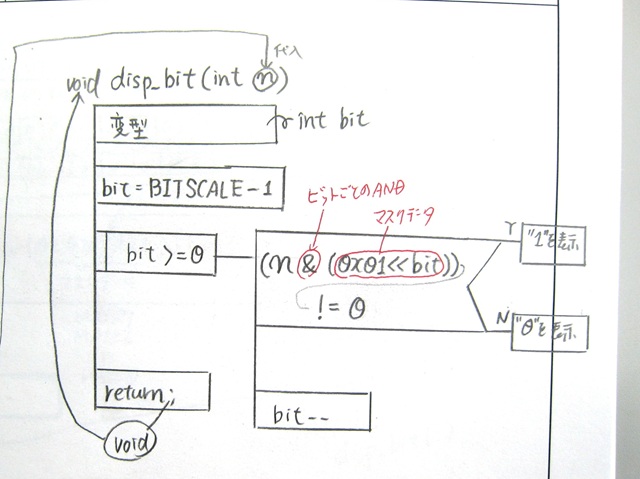 代入
void disp_bit(int n)
変型
int bit
bit = BITSCALE-1
ビットごとのAND
マスクデータ
bit >= 0
(n & (0x01<<bit))
!= 0
Y
"1"を表示
N
"0"を表示
return;
bit--
void